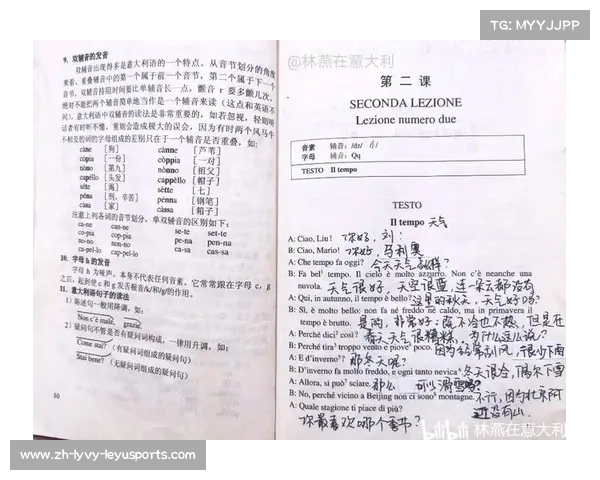 TG: MYYJJPP
@林燕在意大利
9. 双辅音的发音
双辅音出现得多是意大利语的一个特点。从音节划分的角度
来看，重叠辅音中的第一个属于前一个音节，第二个属于下一个
音节。双辅音持阻时间要比单辅音长一点，颤音 r 要多颤几次，
绝对不能把两个辅音简单地当作是一个辅音来读（这点和英语不
同）。意大利语中双辅音的读法是非常重要的，如若忽视，轻则听
话者有时听不懂，重则会造成极大的误会，因为有时两个风马牛
不相及的词的字母组成的差别只在于一个辅音是否重叠，如：
càne [狗] cànne [芦苇]
còpia [一份] còppia [一对]
nòno [第九] nònno [祖父]
capéllo [头发] cappèllo [帽子]
séte [渴] sètte [七]
péna [刑，辛苦] pénna [钢笔]
càsa [家] càssa [箱子]
注意上列各词的音节划分，单双辅音的区别如下：
ca-ne can-ne se-te set-te
co-pia cop-pia pe-na pen-na
no-no non-no ca-sa cas-sa
ca-pel-lo cap-pel-lo
10. 字母 h 的发音
字母 h 为哑声，本身不代表任何音素，它常常跟在字母 c, g
之后，起到使 c 和 g 发舌根音/k/和/g/的作用。
11. 意大利语句子的读法
1）陈述句一般用降调，如：
Non c'è male, grazie.
2）疑问句不管是否有疑问词构成，一律用升调，如：
Come stai?（有疑问词组成的疑问句）
Stai bene?（无疑问词组成的疑问句）
10
第二课
SECONDA LEZIONE
Lezione numero due
音素 辅音：
字母 辅音：Qq
TESTO Il tempo
TESTO
Il tempo 天气
A: Ciao, Liu! 你好，刘！
B: Ciao, Mario! 你好，马利奥
A: Che tempo fa oggi? 今天天气怎样？
B: Fa bel tempo. Il cielo è molto azzurro. Non c'è neanche una
nuvola. 天气很好，天空很蓝，连一朵云都没有
A: Qui, in autunno, il tempo è bello? 这里的秋天，天气好吗？
B: Sì, è molto bello: non fa né freddo né caldo, ma in primavera il
tempo è brutto. 是的，非常好：既不冷也不热，但是在
A: Perché dici così? 春天天气很糟糕，为什么这么说？
B: Perché tira troppo vento e piove poco. 因为经常刮风，很少下雨
A: E d'inverno? 那冬天呢？
B: D'inverno fa molto freddo, e ogni tanto nevica. 冬天很冷，偶尔下雪
A: Allora, si può sciare. 那么 可以滑雪吗？
B: No, perché vicino a Beijing non ci sono montagne. 不行，因为北京附
近没有山。
A: Quale stagione ti piace di più?
你最喜欢哪个季节？
bilibili 林燕在意大利
www.zh-lyvy-leyusports.com